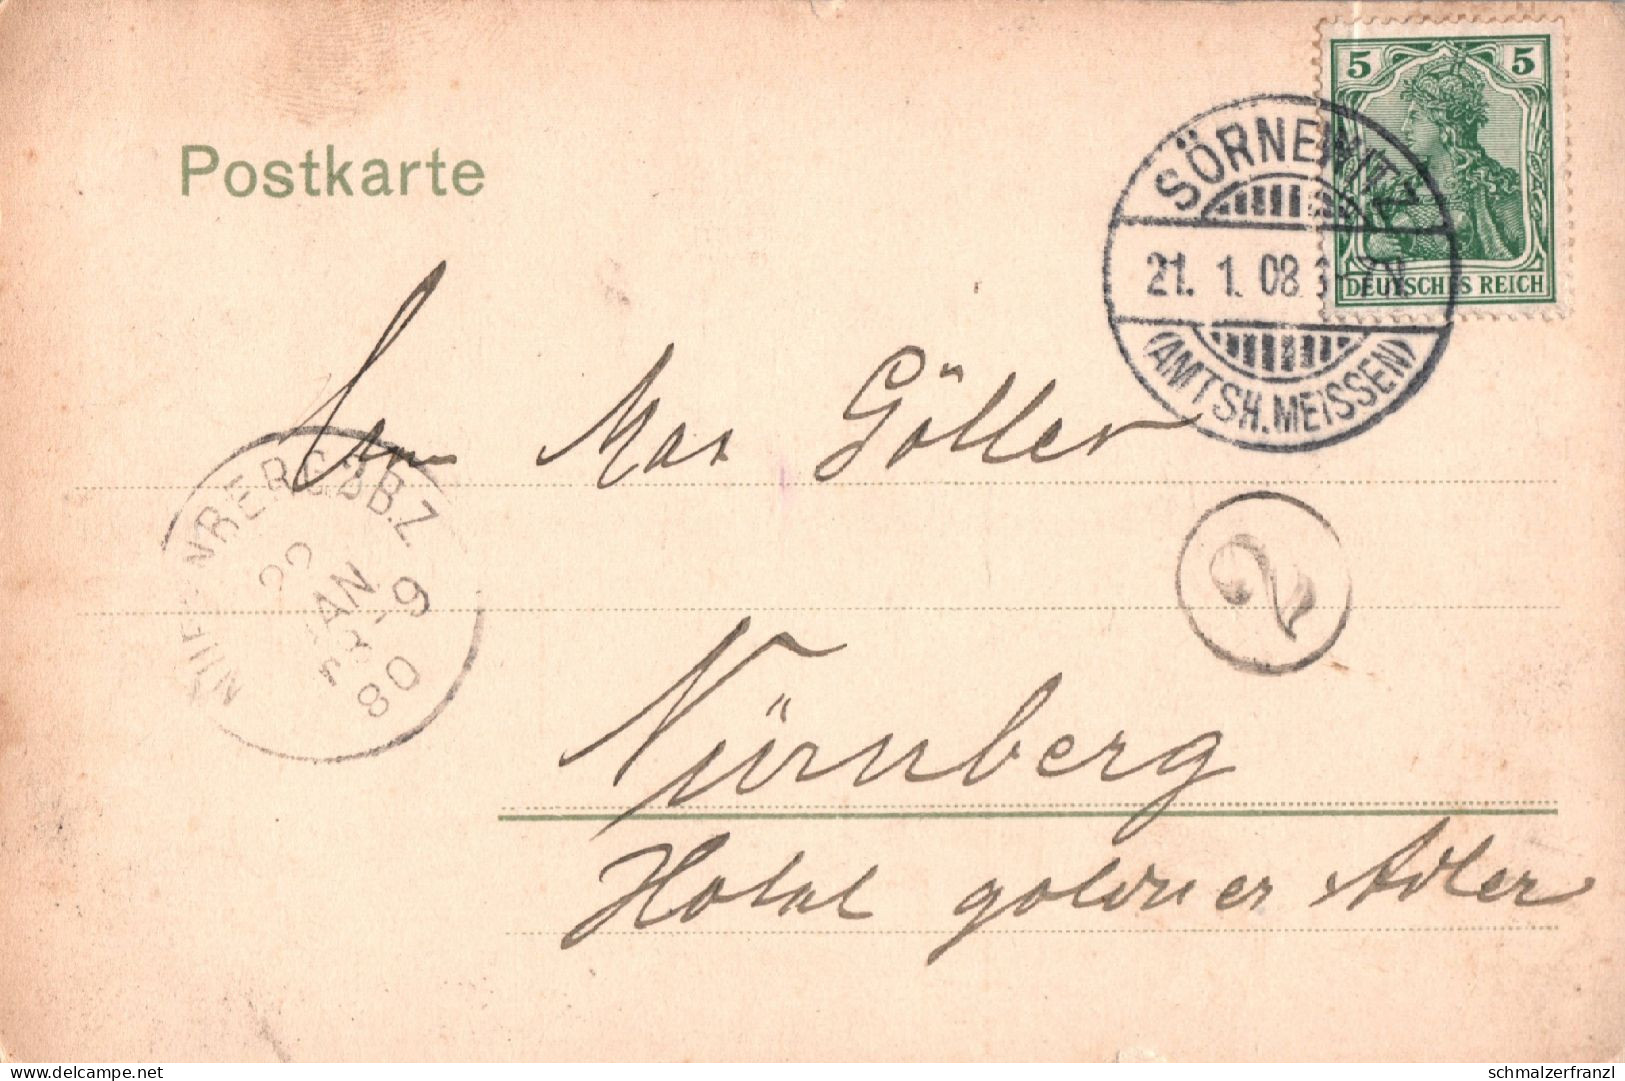 5 5
Postkarte
SÖRNEWITZ
21. 1. 08.
DEUTSCHES REICH
(AMTSH. MEISSEN)
Max Göller
NUERNBERG 2 B.Z.
22
JAN
8-9
08
2
Nürnberg
Hotel goldner Adler
www.delcampe.net
schmalzerfranzl